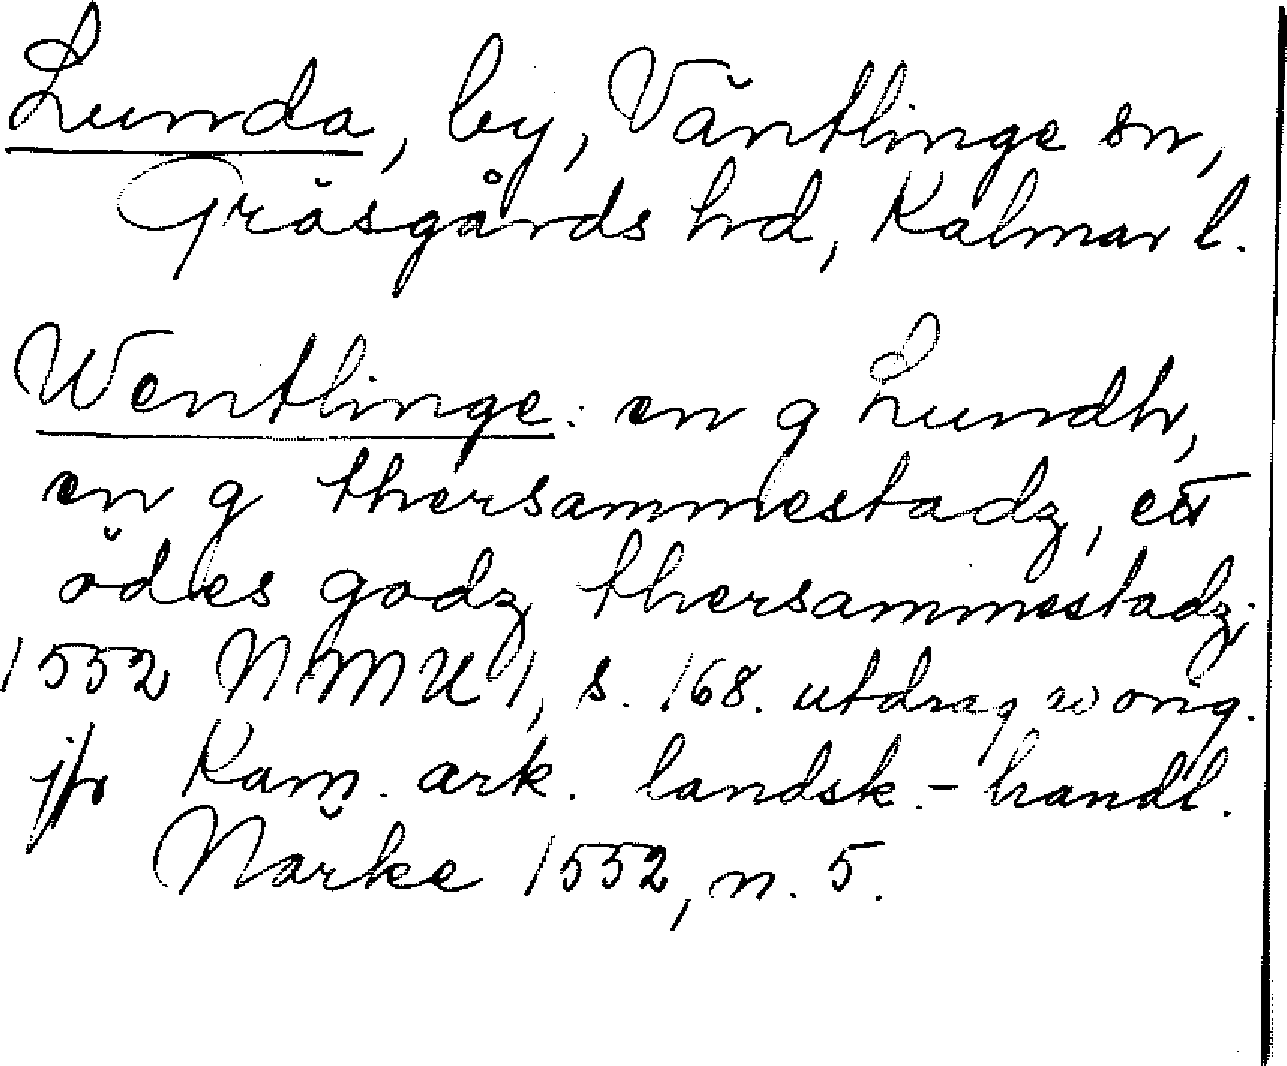 Lunda, by, Väntlinge sn,
Gräsgårds hd, Kalmar l.
Wentlinge: en g Lundh,
en g thersammestadz, ett
ödes godz thersammestadz;
1552 NMU 1, s. 168. utdrag orig.
jfr Kam. ark. landsk.-handl.
Närke 1552, n. 5.